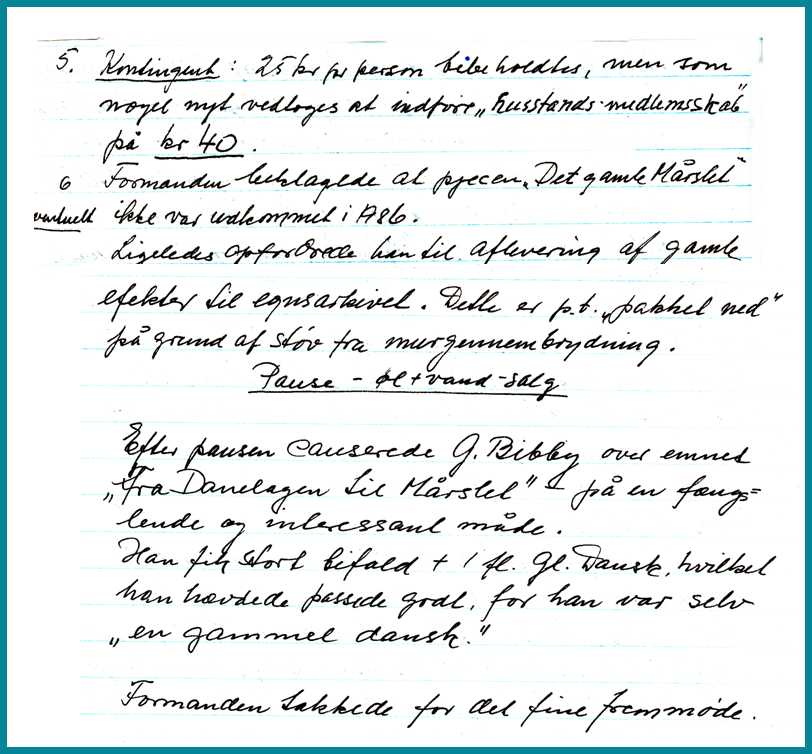 5. Kontingent: 25 kr pr person bibeholdtes, men som
noget nyt vedtoges at indføre „husstands-medlemsskab"
på kr 40.
6 Formanden beklagede at pjecen „Det gamle Mårslet"
eventuelt ikke var udkommet i 1986.
Ligeledes opfordrede han til aflevering af gamle
efekter til egnsarkivet. Dette er p.t. „pakket ned"
på grund af støv fra murgennembrydning.
Pause - øl + vand-salg
Efter pausen causerede G. Bibby over emnet
„Fra Danelagen til Mårslet" - på en fængs=
lende og interessant måde.
Han fik stort bifald + 1 fl. Gl. Dansk, hvilket
han hævdede passede godt, for han var selv
„en gammel dansk."
Formanden takkede for det fine fremmøde.